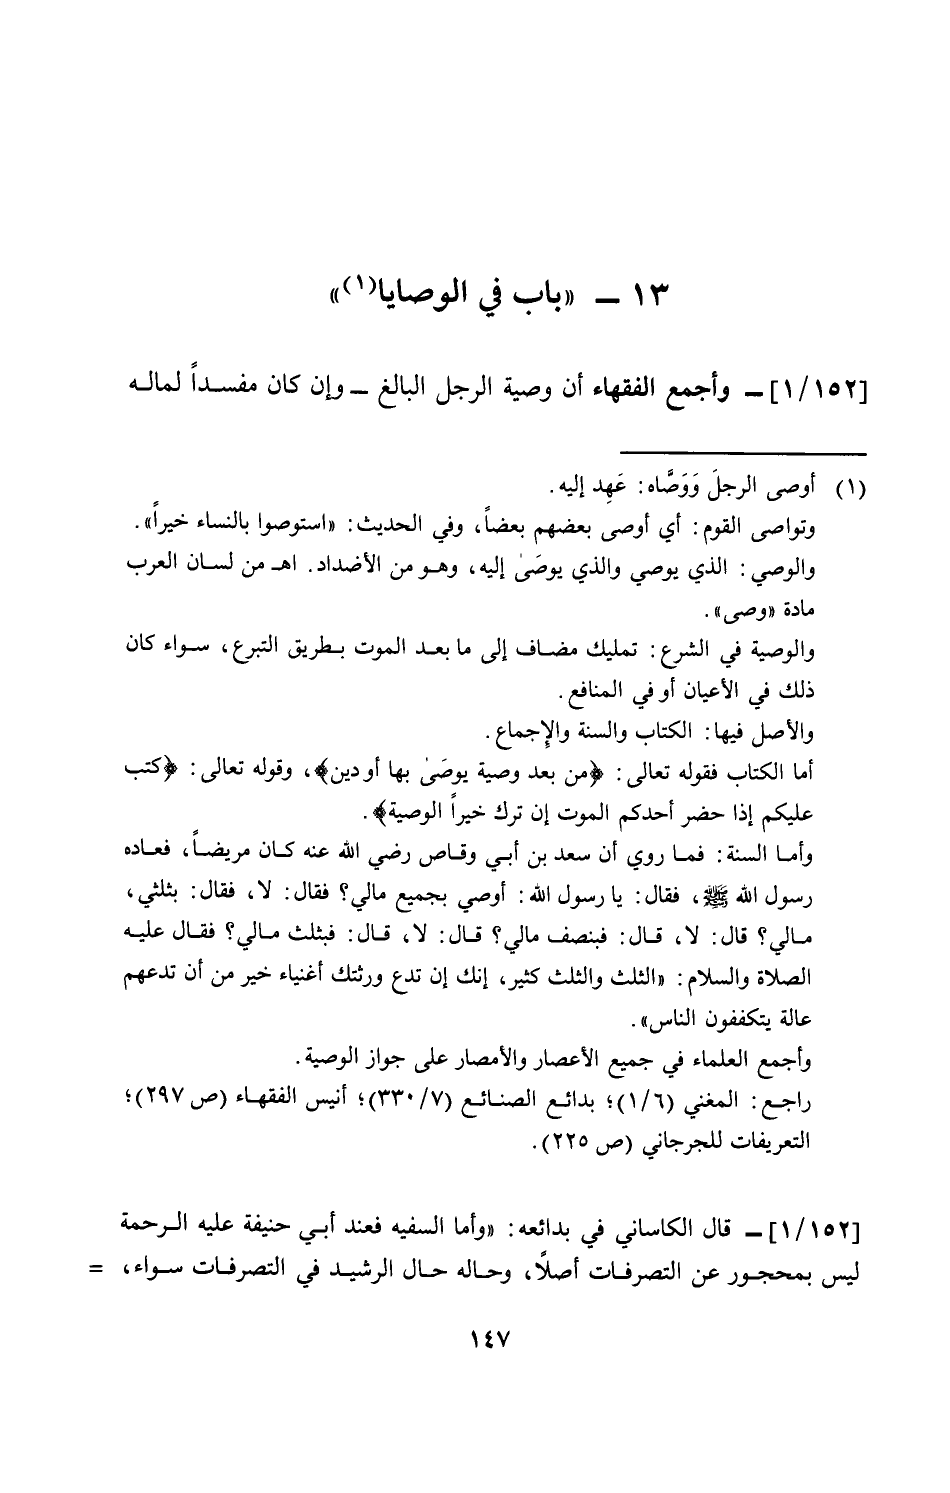 ١٣ ـ «باب في الوصايا(١)»
[١/١٥٢] ـ وأجمع الفقهاء أن وصية الرجل البالغ ـ وإن كان مفسداً لماله
(١) أوصى الرجلَ وَوَصَّاه: عَهِد إليه.
وتواصى القوم: أي أوصى بعضهم بعضاً، وفي الحديث: «استوصوا بالنساء خيراً».
والوصي: الذي يوصي والذي يوصَىٰ إليه، وهو من الأضداد. اهـ من لسان العرب
مادة «وصى».
والوصية في الشرع: تمليك مضاف إلى ما بعد الموت بطريق التبرع، سواء كان
ذلك في الأعيان أو في المنافع.
والأصل فيها: الكتاب والسنة والإجماع.
أما الكتاب فقوله تعالى: ﴿من بعد وصية يوصَىٰ بها أو دين﴾، وقوله تعالى: ﴿كتب
عليكم إذا حضر أحدكم الموت إن ترك خيراً الوصية﴾.
وأما السنة: فما روي أن سعد بن أبي وقاص رضي الله عنه كان مريضاً، فعاده
رسول الله ﷺ، فقال: يا رسول الله: أوصي بجميع مالي؟ فقال: لا، فقال: بثلثي،
مالي؟ قال: لا، قال: فبنصف مالي؟ قال: لا، قال: فبثلث مالي؟ فقال عليه
الصلاة والسلام: «الثلث والثلث كثير، إنك إن تدع ورثتك أغنياء خير من أن تدعهم
عالة يتكففون الناس».
وأجمع العلماء في جميع الأعصار والأمصار على جواز الوصية.
راجع: المغني (١/٦)؛ بدائع الصنائع (٣٣٠/٧)؛ أنيس الفقهاء (ص ٢٩٧)؛
التعريفات للجرجاني (ص ٢٢٥).
[١/١٥٢] ـ قال الكاساني في بدائعه: «وأما السفيه فعند أبي حنيفة عليه الرحمة
ليس بمحجور عن التصرفات أصلًا، وحاله حال الرشيد في التصرفات سواء، =
١٤٧